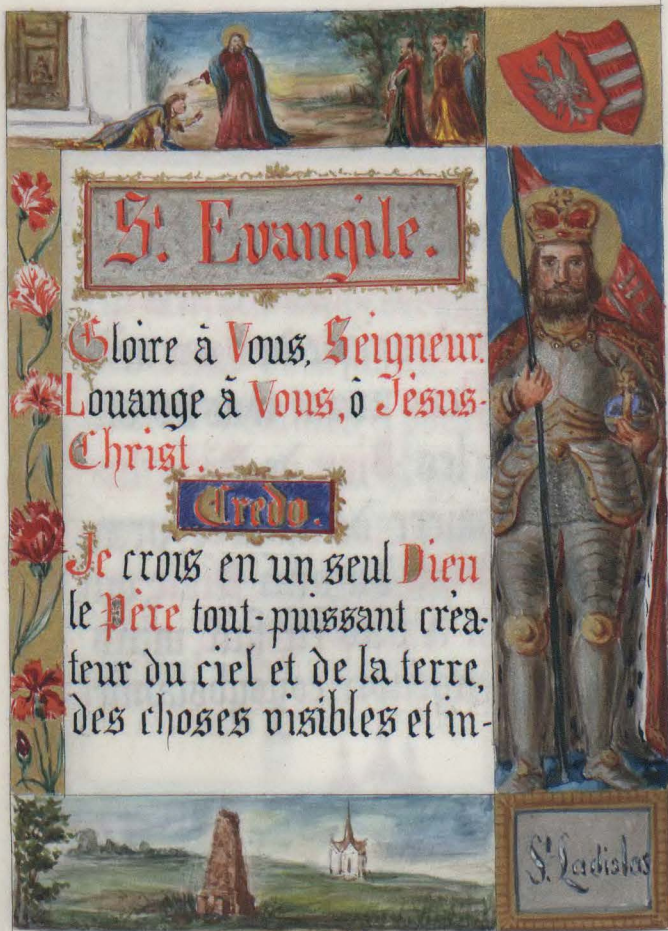 St. Evangile.
Gloire à Vous, Seigneur.
Louange à Vous, ô Jésus-
Christ.
Credo.
Je crois en un seul Dieu
le Père tout-puissant créa-
teur du ciel et de la terre,
des choses visibles et in-
St. Ladislas